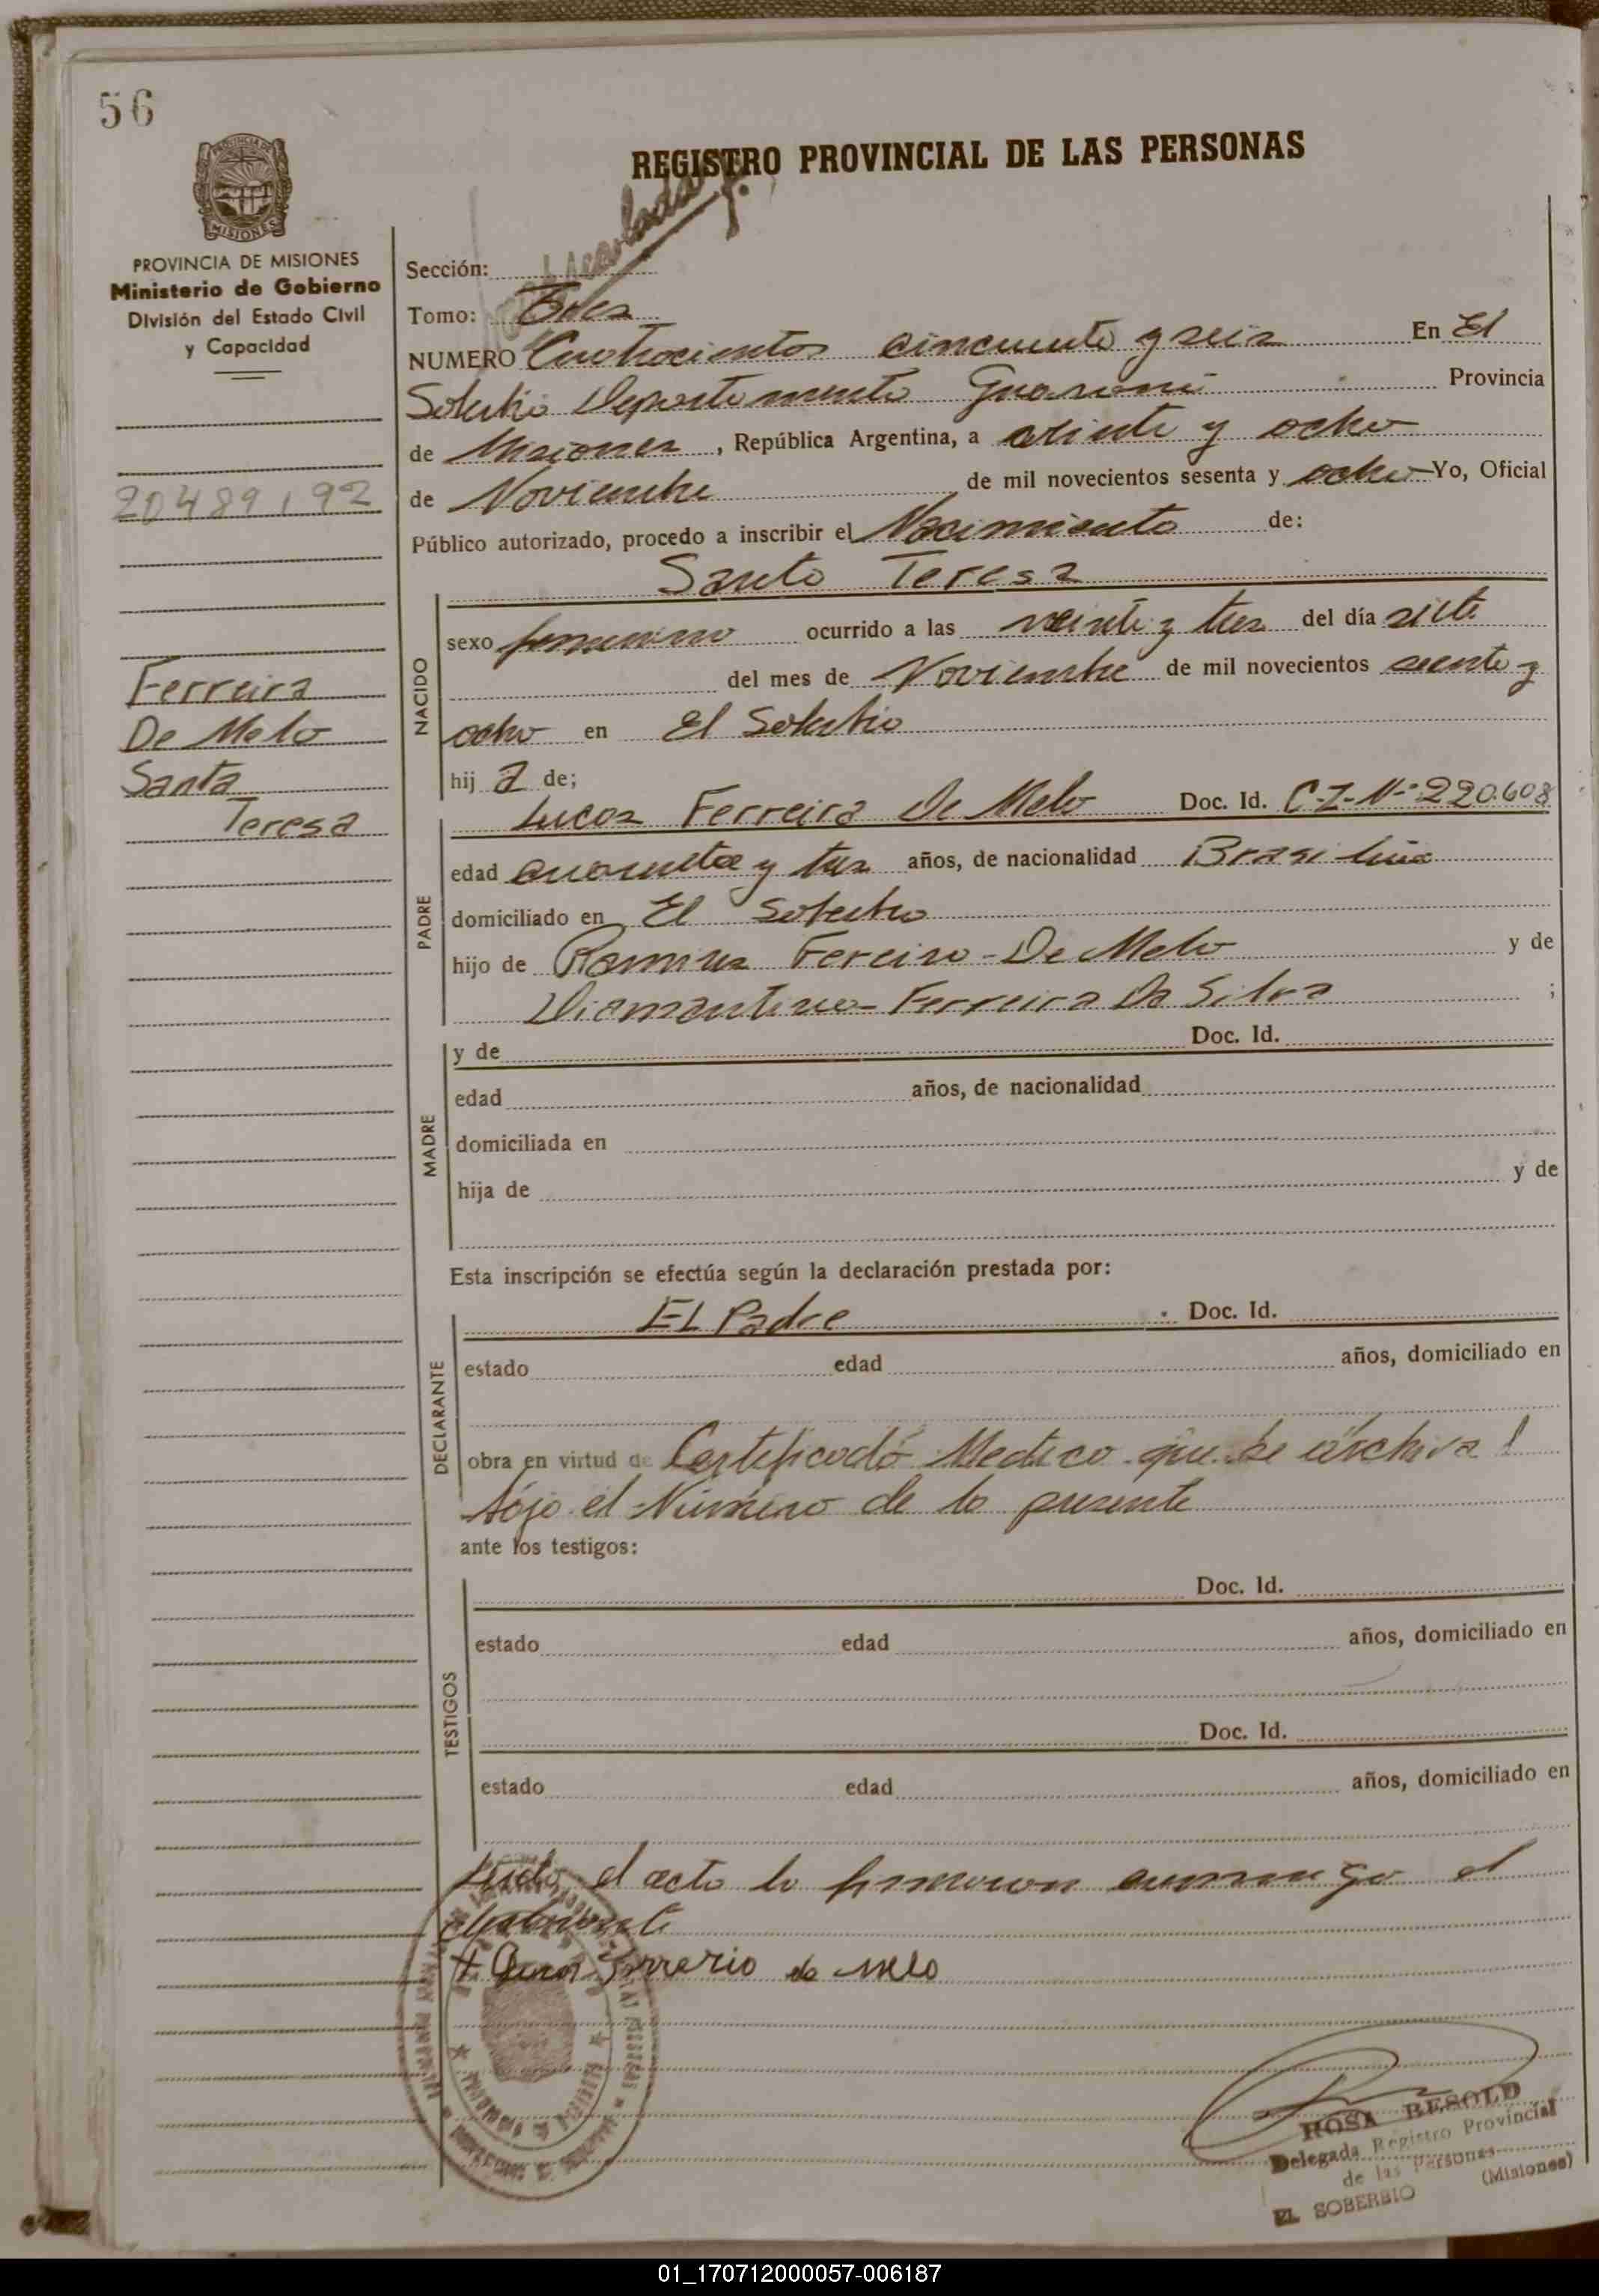 56
REGISTRO PROVINCIAL DE LAS PERSONAS
MISIONES
PROVINCIA DE MISIONES
Ministerio de Gobierno
División del Estado Civil
y Capacidad
20489192
Ferreira
De Melo
Santa
Teresa
Sección:
Tomo: Tres
NUMERO Cuatrocientos cincuenta y seis En El
Soberbio Departamento Guarani Provincia
de Misiones, República Argentina, a veinte y ocho
de Noviembre de mil novecientos sesenta y ocho Yo, Oficial
Público autorizado, procedo a inscribir el Nacimiento de:
Santa Teresa
NACIDO
sexo femenino ocurrido a las veinte y tres del día siete
del mes de Noviembre de mil novecientos sesenta y
ocho en El Soberbio
hij a de;
PADRE
Lucas Ferreira De Melo Doc. Id. C.I. Nº 220.608
edad cuarenta y tres años, de nacionalidad Brasileña
domiciliado en El Soberbio
hijo de Ferreira - De Melo y de
Diamantina - Ferreira Da Silva ;
MADRE
y de Doc. Id.
edad años, de nacionalidad
domiciliada en
hija de y de
Esta inscripción se efectúa según la declaración prestada por:
DECLARANTE
El Padre Doc. Id.
estado edad años, domiciliado en
obra en virtud de Certificado Medico que se archiva
bajo el Número de la presente
ante los testigos:
TESTIGOS
Doc. Id.
estado edad años, domiciliado en
Doc. Id.
estado edad años, domiciliado en
Leido el acta la firmaron conmigo el
declarante
de melo
ROSA BESOLD
Delegada Registro Provincial
de las Personas
EL SOBERBIO (Misiones)
01_170712000057-006187